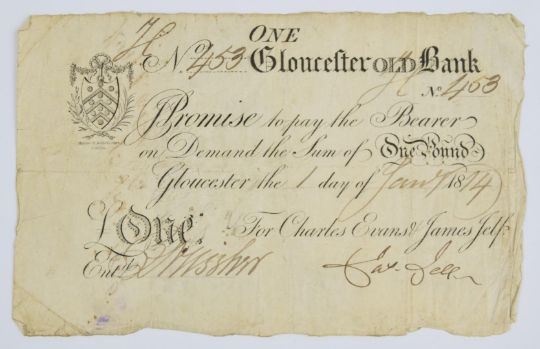 ONE
H No. 453 Gloucester OLD Bank
H No. 453
I Promise to pay the Bearer
on Demand the Sum of One Pound
Gloucester the 1 day of Jany 1814
£One: For Charles Evans & James Jelf
Entd.
Jas. Jelf